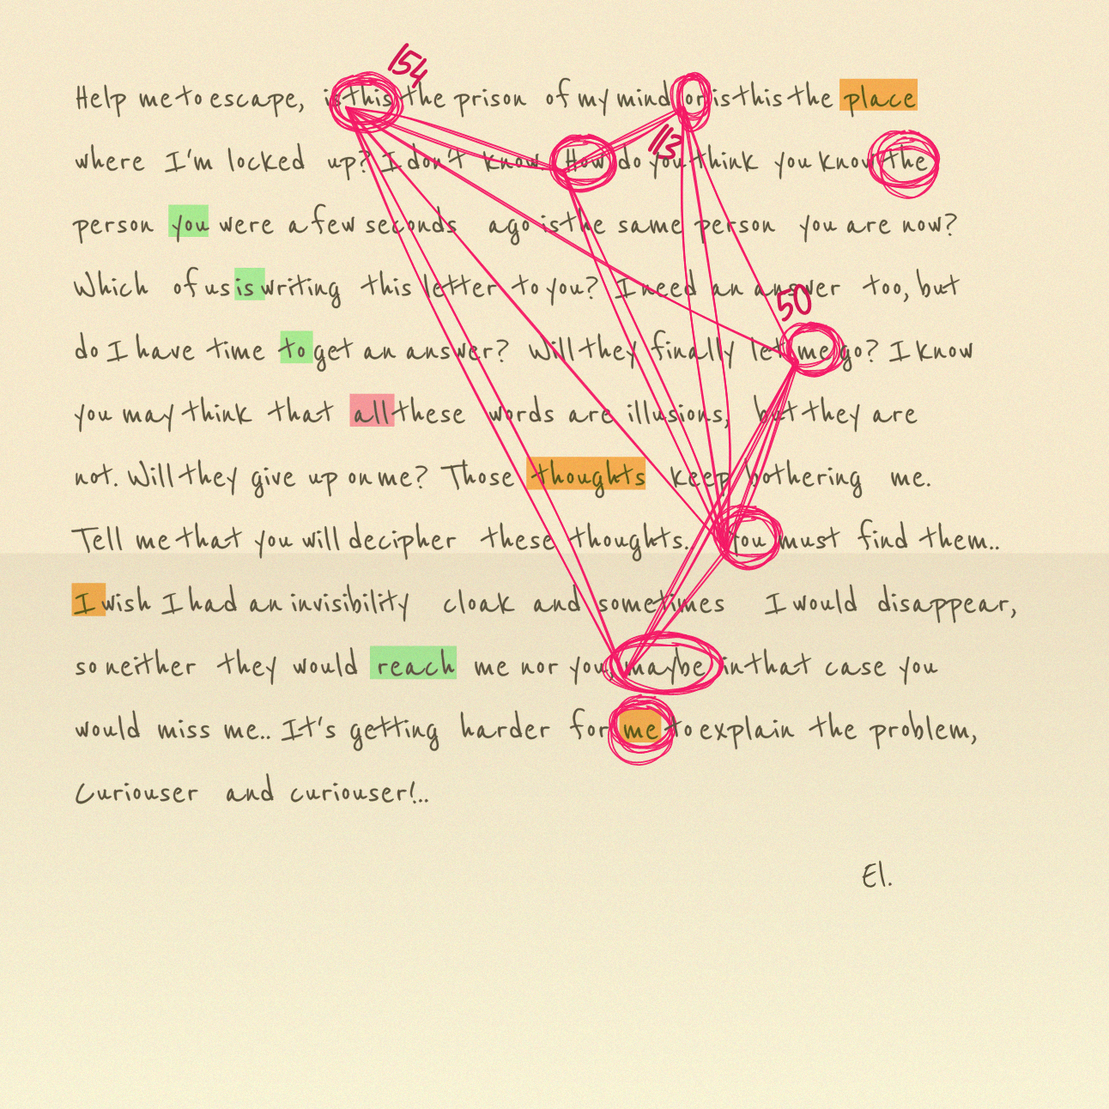 154
Help me to escape, is this the prison of my mind or is this the place
113
where I'm locked up? I don't know. How do you think you know the
person you were a few seconds ago is the same person you are now?
Which of us is writing this letter to you? I need an answer too, but
50
do I have time to get an answer? Will they finally let me go? I know
you may think that all these words are illusions, but they are
not. Will they give up on me? Those thoughts keep bothering me.
Tell me that you will decipher these thoughts.. You must find them..
I wish I had an invisibility cloak and sometimes I would disappear,
so neither they would reach me nor you, maybe in that case you
would miss me.. It's getting harder for me to explain the problem,
Curiouser and curiouser!..
El.